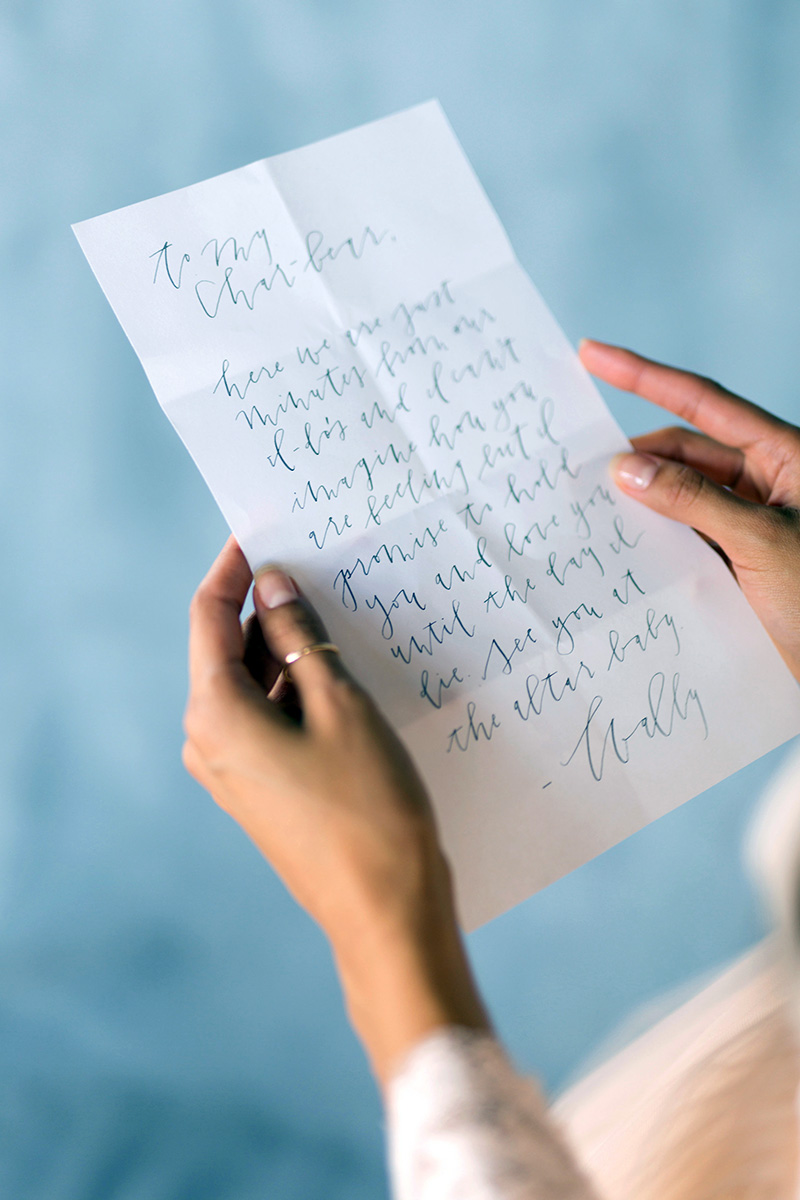 to my
Char-bear.
here we are just
minutes from our
I-do's and I can't
imagine how you
are feeling but I
promise to hold
you and love you
until the day I
die. See you at
the altar baby.
- Wally